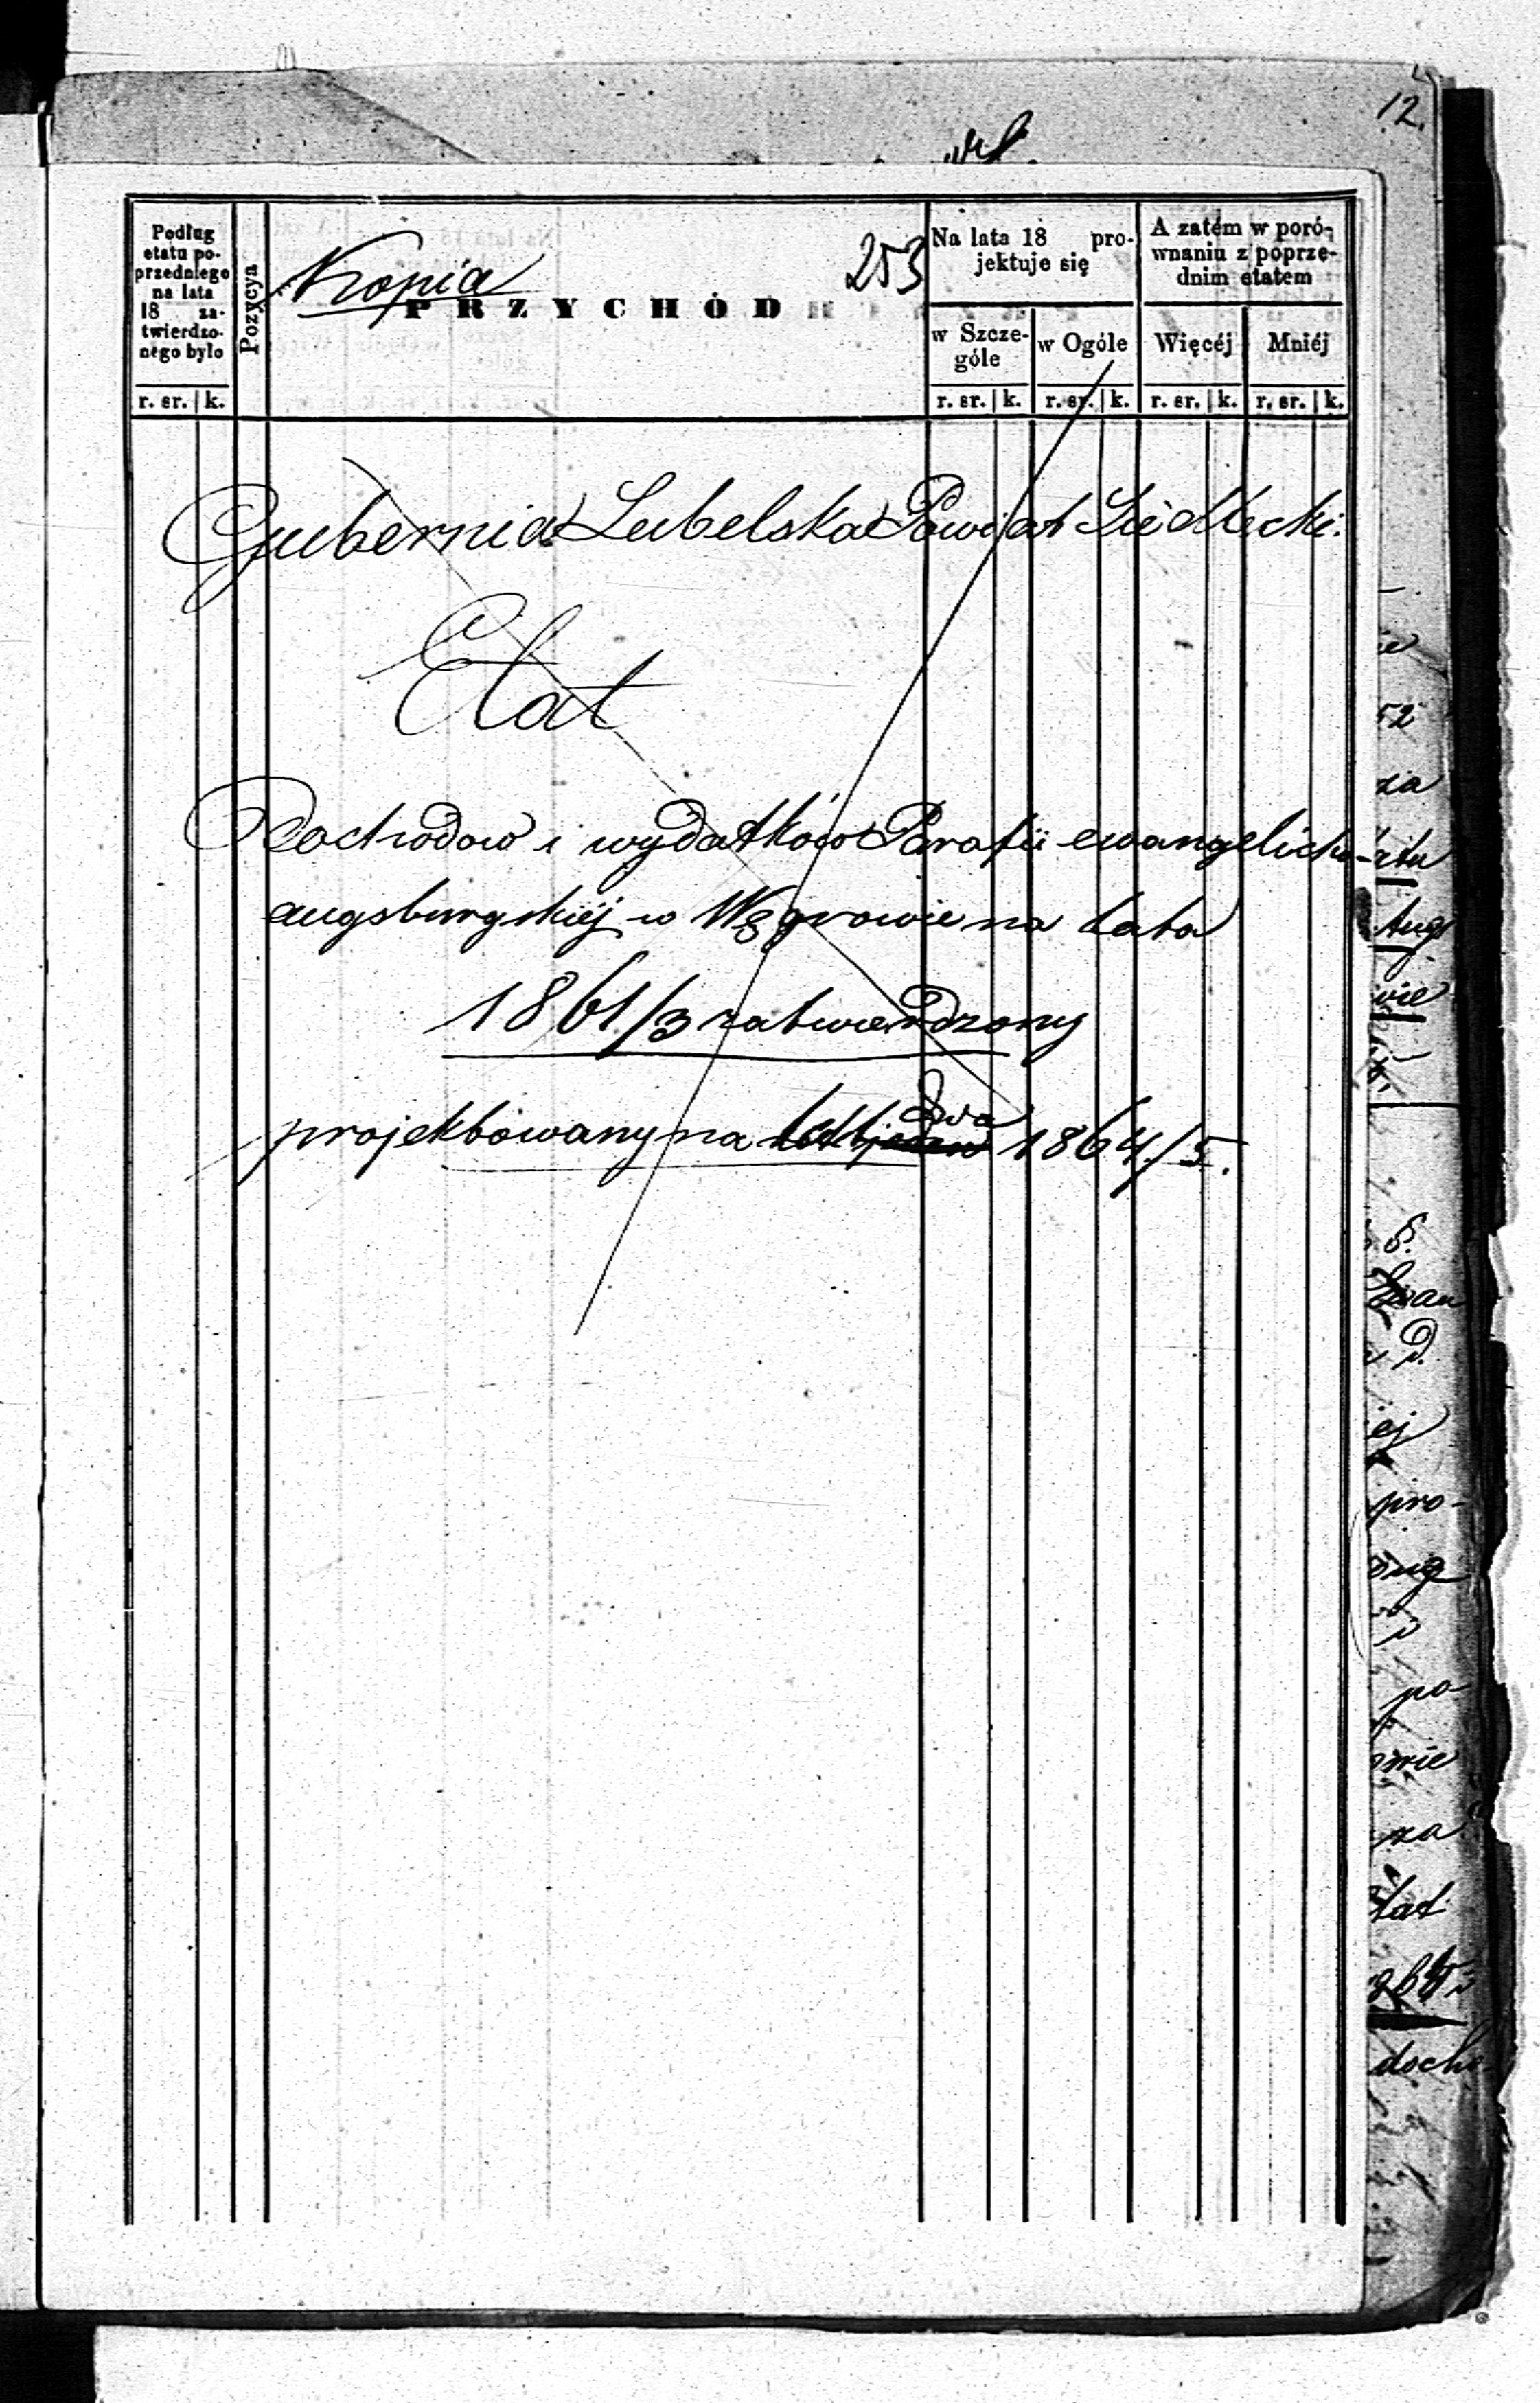 12.
Kopia
253
Podług
etatu po-
przedniego
na lata
18 za-
twierdzo-
nego było
Pozycya
PRZYCHÓD
Na lata 18 pro-
jektuje się
A zatém w poró-
wnaniu z poprze-
dnim etatem
w Szcze-
góle
w Ogóle
Więcéj
Mniéj
r. sr. k.
r. sr. k.
r. sr. k.
r. sr. k.
r. sr. k.
Gubernia Lubelska Powiat Siedlecki.
Etat
Dochodow i wydatków Parafii ewangelicko-
augsburgskiéj w Węgrowie na lata
1861/3 zatwierdzony
dwa
projektowany na 1864/5.
52
za
Aug
wie
Ewan
ej
pro-
po-
wie
za
docho-